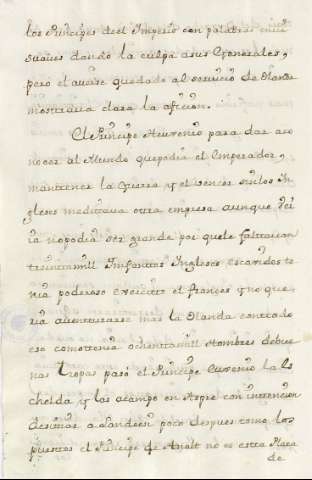 los Principes del Imperio con palabras mui
suaves dando la culpa a sus Generales,
pero el averse quedado al servicio de Olanda
mostrava clara la aficion.
El Principe Heuxenio para dar a co
nocer al Mundo que podia el Emperador,
mantener la Guerra y el vencer sin los In
gleses meditava otra empresa aunque ve
ia no podia ser grande por que le faltavan
treinta mill Infantes Ingleses, escaridos te
nia poderoso exercito el frances y no que
ria aventurarse mas la Olanda con todo
eso como tenia ochenta mill Hombres de bue
nas tropas paso el Principe Euxenio la Es
chelda y las acampo en Aspre con intencion
de sitiar a Landresi por despues tomo los
puestos el Principe de Analt no es esta Plaza
de